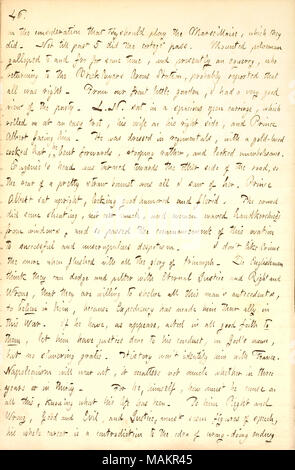 46.
in the consideration that they should play the Marseillaise, which they
did. Not till past 5 did the cortege pass. Mounted policemen
galloped to and fro for some time, and presently an equerry, who
returning to the Bricklayers Arms Station, probably reported that
all was right. From our front little garden, I had a very good
view of the party. L. N. sat in a spacious open carriage, which
rolled on at an easy trot, his wife at his right side, and Prince
Albert facing him. He was dressed in regimentals, with a gold-laced
cocked hat, bent forwards, stooping rather, and looked unwholesome.
Eugenie's head was turned towards the other side of the road, so
the rear of a pretty straw bonnet was all I saw of her. Prince
Albert sat upright, looking good humored and florid. The crowd
did some shouting, not very much, and women waved handkerchiefs
from windows, and so passed the announcement of this ovation
to successful and unscrupulous despotism. I don't like Crime
the more when flushed with all the glory of triumph. Do Englishmen
think they can dodge and palter with Eternal Justice and Right and
Wrong, that they are willing to swallow all this man's antecedents,
to believe in him, because Expediency has made him their ally in
this War. If he have, as appears, acted in all good faith to
them, let him have justice done to his conduct, in God's name,
but no admiring praise. History won't identify him with France.
Napoleonism will wear out, it matters not much whether in three
years or in thirty. For he, himself, how must he sneer at
all this, knowing what his life has been. To him Right and
Wrong, Good and Evil, and Justice, must seem figures of speech,
his whole career is a contradiction to the idea of wrong-doing ending
alamy
Image ID: MAKR45
www.alamy.com